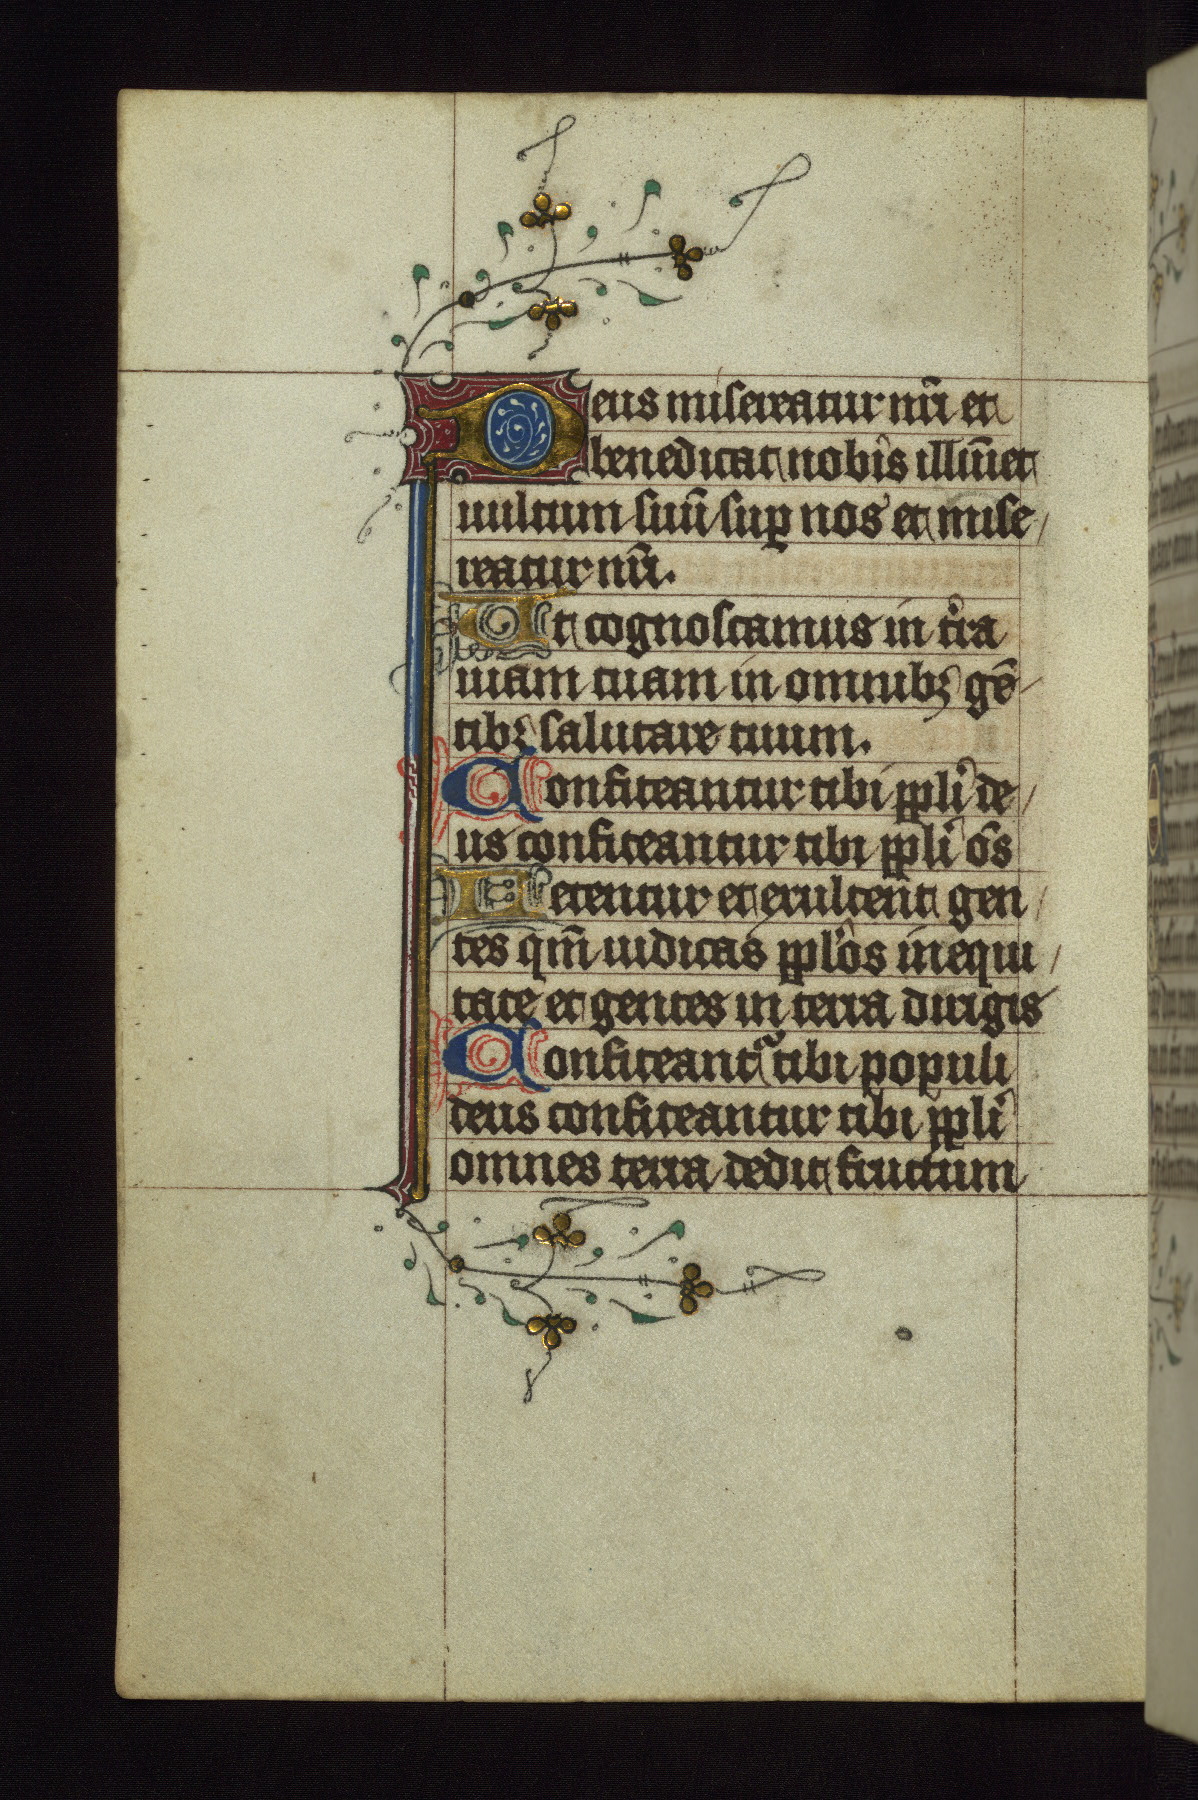 Deus misereatur nr̄i et
benedicat nobis illūīet
uultum suū sup nos et mise
reatur nr̄i.
Ut cognoscamus in tr̄ra
uiam tuam in omnibꝫ gē
tibꝫ salutare tuum.
Confiteantur tibi ppl̄i de
us confiteantur tibi ppl̄i ōs
Letentur et exultent gen
tes qm̄ iudicas ppl̄os in equi
tate et gentes in terra dirigis
Confiteant᷑ tibi populi
deus confiteantur tibi ppl̄i
omnes terra dedit fructum